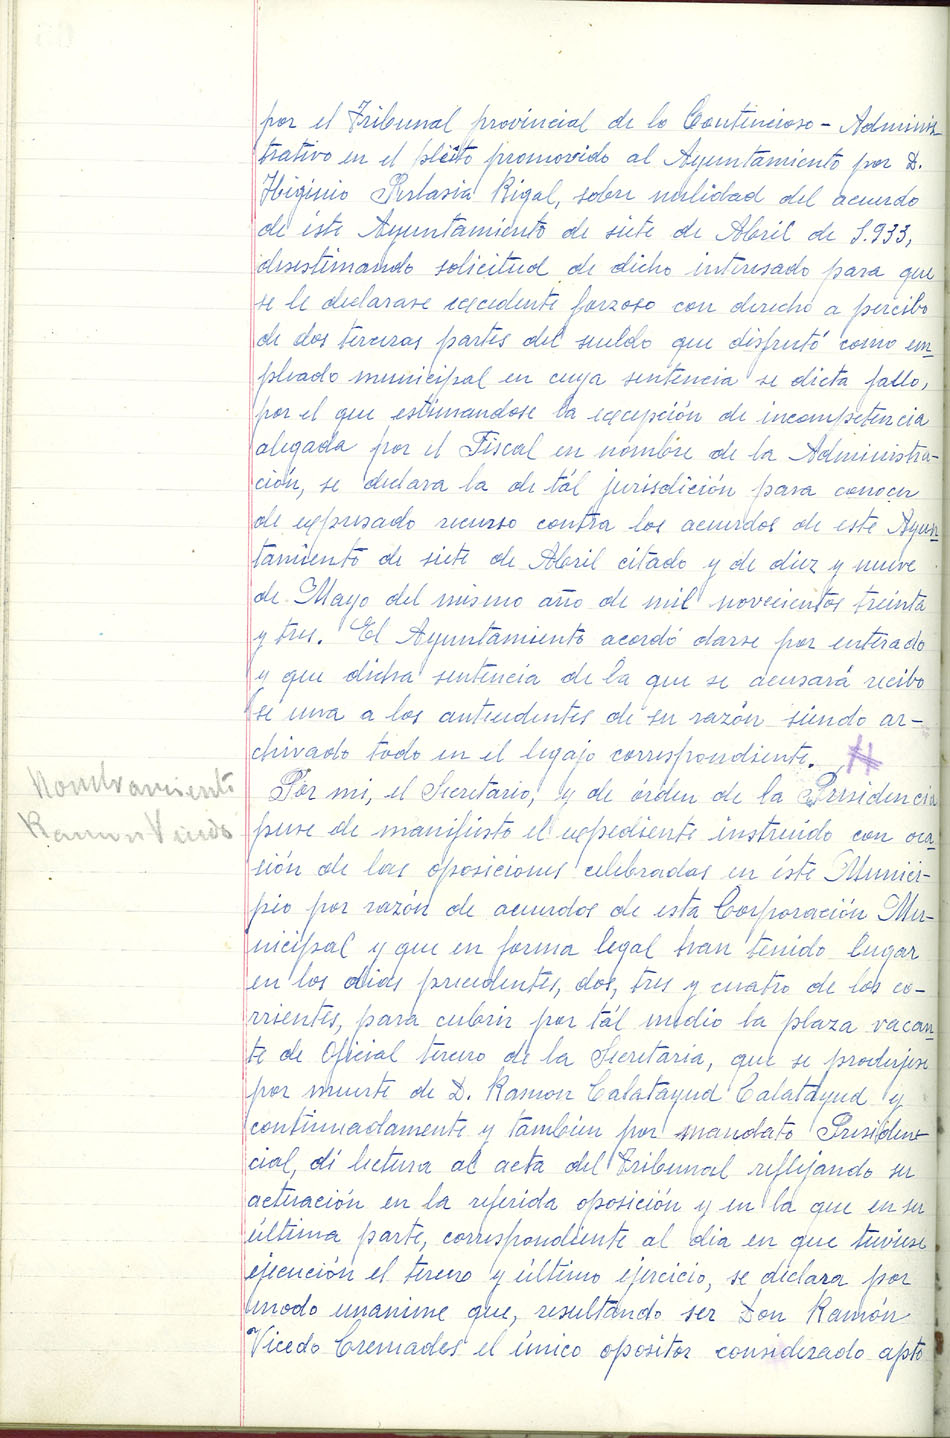 por el Tribunal provincial de lo Contencioso-Adminis-
trativo en el pleito promovido al Ayuntamiento por D.
Higinio Perlasia Rigal, sobre nulidad del acuerdo
de éste Ayuntamiento de siete de Abril de 1.933,
desestimando solicitud de dicho interesado para que
se le declarase excedente forzoso con derecho a percibo
de dos terceras partes del sueldo que disfrutó como em-
pleado municipal en cuya sentencia se dicta fallo,
por el que estimandose la excepción de incompetencia
alegada por el Fiscal en nombre de la Administra-
ción, se declara la de tál jurisdición para conocer
de expresado recurso contra los acuerdos de este Ayun-
tamiento de siete de Abril citado y de diez y nueve
de Mayo del mismo año de mil novecientos treinta
y tres. El Ayuntamiento acordó darse por enterado
y que dicha sentencia de la que se acusará recibo
se una a los antecedentes de su razón siendo ar-
chivado todo en el legajo correspondiente. #
Nombramiento
Ramon Vicedo
Por mi, el Secretario, y de órden de la Presidencia
puse de manifiesto el expediente instruido con oca-
sión de las oposiciones celebradas en éste Munici-
pio por razón de acuerdos de esta Corporación Mu-
nicipal y que en forma legal han tenido lugar
en los dias precedentes, dos, tres y cuatro de los co-
rrientes, para cubrir por tál medio la plaza vacan-
te de Oficial tercero de la Secretaria, que se produjese
por muerte de D. Ramon Calatayud Calatayud y
continuadamente y también por mandato Presiden-
cial, dí lectura al acta del Tribunal reflejando su
actuación en la referida oposición y en la que en su
última parte, correspondiente al dia en que tuviese
ejecución el tercero y último ejercicio, se declara por
modo unanime que, resultando ser Don Ramón
Vicedo Cremades el único opositor considerado apto